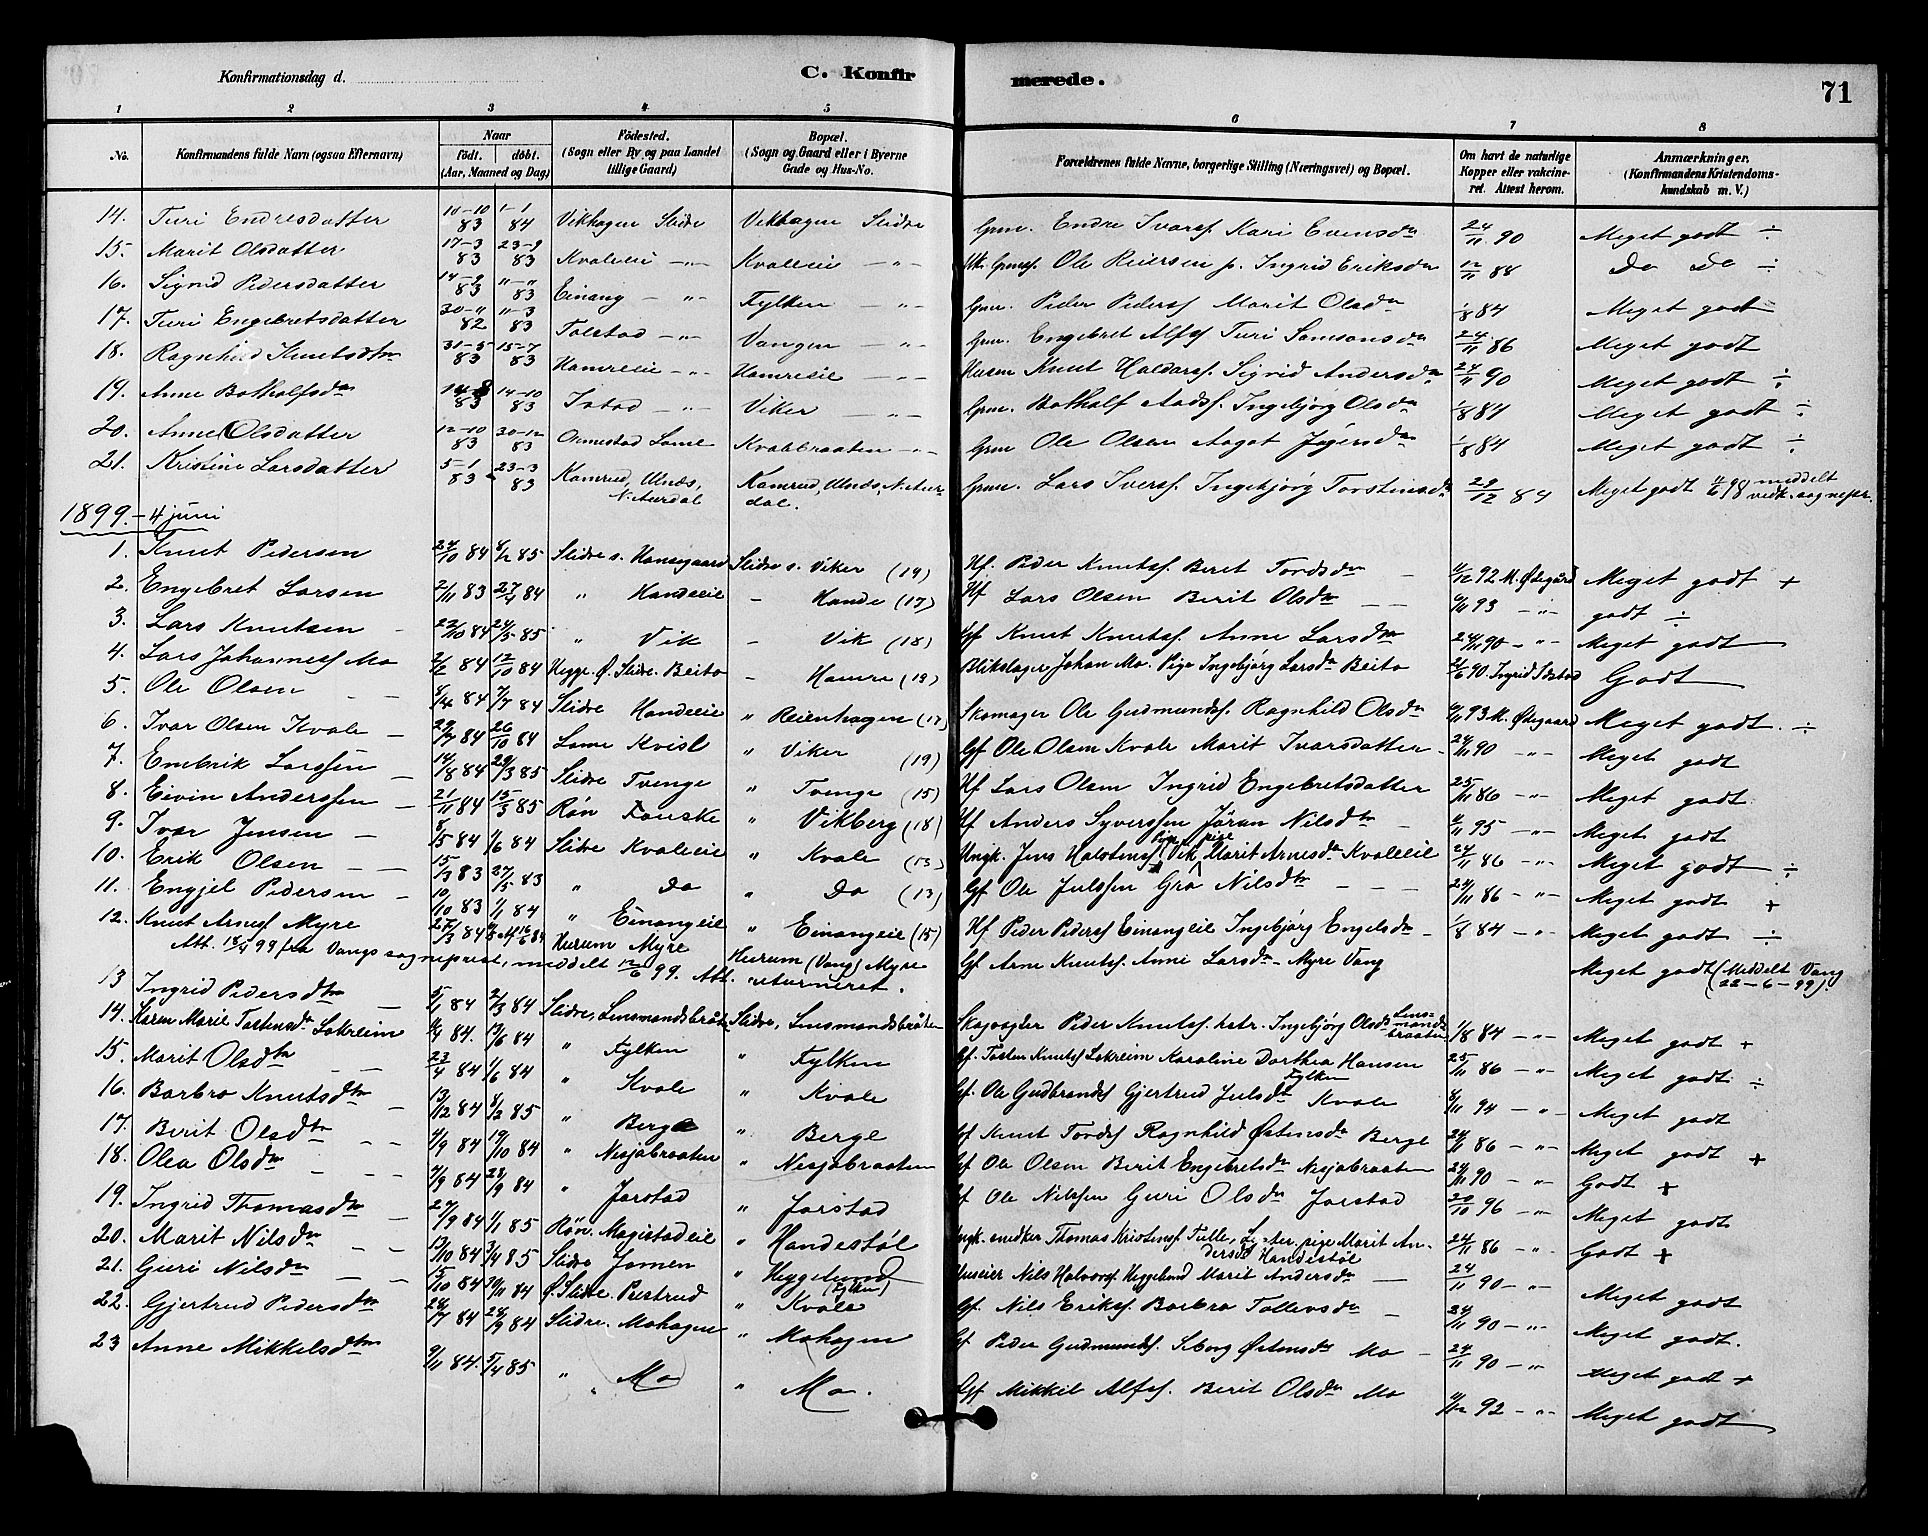 Konfirmationsdag d. C. Konfirmerede. 71
1 2 3 4 5 6 7 8
No. Konfirmandens fulde Navn (ogsaa Efternavn) Naar født. døbt. (Aar, Maaned og Dag) Fødested. (Sogn eller By og paa Landet tillige Gaard) Bopæl. (Sogn og Gaard eller i Byerne Gade og Hus-No. Forældrenes fulde Navne, borgerlige Stilling (Næringsvei) og Bopæl. Om havt de naturlige Kopper eller vakcineret. Attest herom. Anmærkninger. (Konfirmandens Kristendomskundskab m. V.)
14. Turi Endresdatter 10-10 83 1-1 84 Vikhagen Slidre Vikhagen Slidre Gmr. Endre Ivarss. Kari Evensdtr 24/11 90 Meget godt ÷
15. Marit Olsdatter 17-3 83 23-9 83 Kvaleeie -"- Kvaleeie -"- Ole Reiersen p. Ingrid Eriksdtr 12/11 88 Do Do ÷
16. Sigrid Pedersdatter 14-9 83 "-" 83 Einang -"- Fylken -"- Gmr. Peder Pederss Marit Olsdtr 1/8 84 Meget godt ÷
17. Turi Engebretsdatter 30-" 82 11-3 83 Tolstad -"- Vangen -"- Gmr. Engebret Alfss Turi Samsonsdtr 24/11 86 Meget godt
18. Ragnhild Knutsdtr 31-5 83 15-7 83 Hamreeie -"- Hamreeie -"- Husm Knut Haldorss. Sigrid Andersdtr 24/11 90 Meget godt ÷
19. Anne Botholfsdtr 14-8 83 14-10 83 Istad -"- Viker -"- Gmr. Botholf Aadss. Ingebjørg Olsdtr 1/8 84 Meget godt ÷
20. Anne Olsdatter 12-10 83 30-12 83 Ormestad Lome Kvabbraaten -"- Gmr Ole Olsen Aagot Jøgersdtr 1/8 84 Meget godt ÷
21. Kristine Larsdatter 5-1 83 23-3 83 Kamrud, Ulnæs, N. Aurdal Kamrud, Ulnæs, N. Aurdal. Gmr. Lars Iverss. Ingebjørg Torstensdtr 29/12 84 Meget godt 4/6 98 meddelt vedk. sognepr.
1899. - 4 juni
1. Knut Pedersen 24/10 84 8/2 85 Slidre s. Hansegaard Slidre s. Viker (19) Gf. Peder Knutss. Beret Tordsdtr - 4/12 92 M. Ødegård Meget godt +
2. Engebret Larsen 2/11 83 27/4 84 " Handeeie - Hande (17) Hf Lars Olsen Berit Olsdtr -- 9/11 93 -"- godt ÷
3. Lars Knutsen - 22/10 84 24/5 85 " Vik - Vik (18) Gf Knut Knutss. Anne Larsdtr 24/11 90 -"- Meget godt
4. Lars Johanness Mo 2/2 84 12/10 84 Hegge. Ø. Slidre. Beito - Hamre (19) Blikslager Johan Mo. Pige Ingebjørg Larsdtr Beito 21/6 90. Ingrid Godt
5. Ole Olsen - - 8/4 84 7/7 84 Slidre Handeeie " Reienhagen (17) Skomager Ole Gudmundss. Ragnhild Olsdtr 9/11 93 M. Ødegaard Meget godt. ÷
6. Ivar Olsen Kvale - 29/7 84 26/10 84 Lome Kvisl " Viker (19) Gf Ole Olsen Kvale Marit Ivarsdatter - 24/11 90 -"- Meget godt
7. Embrik Larssen - 14/8 84 29/3 85 Slidre Tvenge " Tvenge (15) Hf Lars Olsen Ingrid Engebretsdatter 25/11 86 -"- Meget godt
8. Eivin Anderssen - 21/11 84 15/3 85 Røn Fauske " Vikberg (18) Hf Anders Syverssen Jøran Nilsdtr - 4/11 95 -"- Meget godt
9. Ivar Jensen - 8/5 84 1/6 84 Slidre Kvaleeie " Kvale (13) Ungk. Jens Halstenss Vik pige Marit Arnesdtr Kvaleeie 24/11 86 -"- Meget godt ÷
10. Erik Olsen - - 15/3 83 27/5 83 " Do " Do (13) Gf Ole Julssen Grø Nilsdtr - - - 24/11 86 -"- Meget godt +
11. Engjel Pedersen - 10/10 83 1/1 84 " Einangeie " Einangeie (15) Hf Peder Pederss Einangeie Ingebjørg Engelsdtr - 1/8 84 -"- Meget godt ÷
12. Knut Arness Myre 27/3 84 16/6 84 Hurum Myre Hurum (Vang) Myre Gf Arne Knutss. Anne Larsdtr - Myre Vang Meget godt (Meddelt Vang 22-6-99)
Att. 18/4 99 fra Vangs sogneprest, meddelt 12/6 99. Att. returneret.
13 Ingrid Pedersdtr - 5/1 84 2/3 84 Slidre, Lensmandsbråten Slidre, Lensmandsbråten Skogvogter Peder Knutss. hstr. Ingebjørg Olsdtr Lensmandsbraaten 1/8 84 -"- Meget godt +
14. Karen Marie Tostensdtr Lokreim 4/4 84. 13/6 84 " Fylken " Fylken Gf. Tosten Knutss Lokreim Karoline Dorthea Hansen Fylken 25/11 86 -"- Meget godt ÷
15. Marit Olsdtr - - 23/4 84 1/6 84 " Kvale " Kvale Gf. Ole Gudbrandss Gjertrud Julsdtr Kvale 8/11 94 -"- Meget godt
16. Barbro Knutsdtr - 13/12 84 8/2 85 " Berge " Berge Gf Knut Tordss Ragnhild Østensdtr Berge 24/11 86 -"- Meget godt +
17. Berit Olsdtr - - 4/9 84 19/10 84 " Nesjabraaten " Nesjabraaten Gf Ole Olsen Berit Engebretsdtr Nesjabraaten 24/11 90 -"- Godt +
18. Olea Olsdtr - - 7/9 84 28/9 84 " Jarstad " Jarstad Gf Ole Nilssen Guri Olsdtr Jarstad 20/10 96 -"- Meget godt
19. Ingrid Thomasdtr - 27/9 84 1/1 85 Røn. Magistadeie " Handestøl Ungk. snedker Thomas Kristenss Tulle, pige Marit Andersdtr Handestøl 24/11 86 -"- Godt +
20. Marit Nilsdtr - - 13/10 84 3/4 85 Slidre Jomen " Heggelund (Fylken) Huseier Nils Halvorss. Heggelund Marit Andersdtr - 24/11 90 -"- Meget godt
21. Guri Nilsdtr - - 15/10 84 30/11 84 Ø. Slidre. Prestrud " Kvale Gf. Nils Erikss. Barbro Tollevsdtr - 24/11 90 -"- Meget godt.
22. Gjertrud Pedersdtr 28/7 84 28/9 84 Slidre. Mohagen " Mohagen Gf Peder Gudmundss. Siborg Østensdtr Mo - 24/11 90 -"- Meget godt +
23 Anne Mikkelsdtr 9/11 84. 5/4 85 " Mo " Mo. Gf Mikkel Alfss. Berit Olsdtr Mo 4/12 92 -"- Meget godt